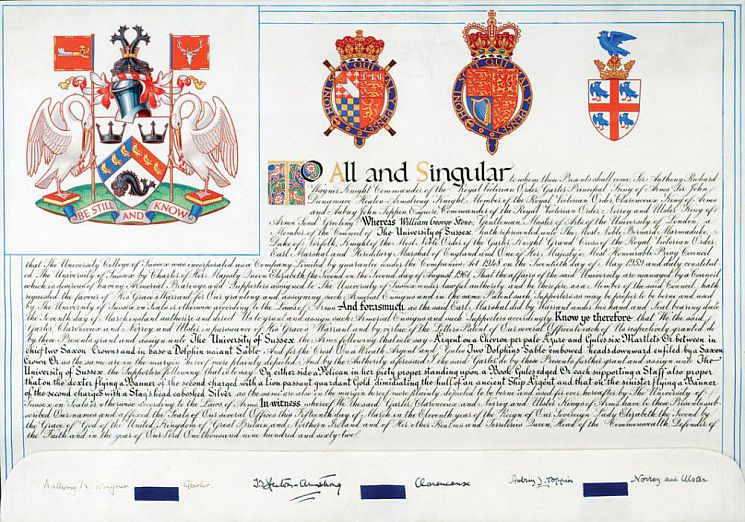 BE STILL AND KNOW
HONI SOIT QUI MAL Y PENSE
HONI SOIT QUI MAL Y PENSE
TO All and Singular to whom these Presents shall come, Sir Anthony Richard
Wagner, Knight Commander of the Royal Victorian Order, Garter Principal King of Arms, Sir John
Dunamace Heaton-Armstrong, Knight, Member of the Royal Victorian Order, Clarenceux King of Arms
and Aubrey John Toppin Esquire, Commander of the Royal Victorian Order, Norroy and Ulster King of
Arms Send Greeting Whereas William George Stone, Gentleman, Master of Arts of the University of London,
Member of the Council of The University of Sussex, hath represented unto The Most Noble Bernard Marmaduke,
Duke of Norfolk, Knight of the Most Noble Order of the Garter, Knight Grand Cross of the Royal Victorian Order,
Earl Marshal and Hereditary Marshal of England and One of Her Majesty's Most Honourable Privy Council
that The University College of Sussex was incorporated as a Company Limited by guarantee under the Companies Act 1948 on the Seventh day of May 1959 and duly constituted
The University of Sussex by Charter of Her Majesty Queen Elizabeth the Second on the Second day of August 1961, That the affairs of the said University are managed by a Council
which is desirous of having Armorial Bearings and Supporters assigned to The University of Sussex under lawful authority and he therefore, as a Member of the said Council, hath
requested the favour of His Grace's Warrant for Our granting and assigning such Armorial Ensigns and in the same Patent such Supporters as may be proper to be borne and used
by The University of Sussex on Seals or otherwise according to the Laws of Arms And forasmuch as the said Earl Marshal did by Warrant under his Hand and Seal bearing date
the Seventh day of March instant authorize and direct Us to grant and assign such Armorial Ensigns and such Supporters accordingly Know ye therefore that We the said
Garter, Clarenceux and Norroy and Ulster in pursuance of His Grace's Warrant and by virtue of the Letters Patent of Our several Offices to each of Us respectively granted do
by these Presents grant and assign unto The University of Sussex the Arms following that is to say: Argent on a Chevron per pale Azure and Gules six Martlets Or between in
chief two Saxon Crowns and in base a Dolphin naiant Sable And for the Crest On a Wreath Argent and Gules Two Dolphins Sable imbowed heads downward enfiled by a Saxon
Crown Or as the same are in the margin hereof more plainly depicted And by the Authority aforesaid I the said Garter do by these Presents further grant and assign unto The
University of Sussex the Supporters following that is to say: On either side a Pelican in her piety proper standing upon a Book Gules edged Or each supporting a Staff also proper
that on the dexter flying a Banner of the second charged with a Lion passant guardant Gold dimidiating the hull of an ancient Ship Argent and that on the sinister flying a Banner
of the second charged with a Stag's head caboshed Silver as the same are also in the margin hereof more plainly depicted to be borne and used for ever hereafter by The University of
Sussex on Seals or otherwise according to the Laws of Arms In witness whereof We the said Garter, Clarenceux and Norroy and Ulster Kings of Arms have to these Presents subscribed
Our names and affixed the Seals of Our several Offices this Fifteenth day of March in the Eleventh year of the Reign of Our Sovereign Lady Elizabeth the Second by
the Grace of God of the United Kingdom of Great Britain and Northern Ireland and of Her other Realms and Territories Queen, Head of the Commonwealth, Defender of
the Faith and in the year of Our Lord One thousand nine hundred and sixty-two.
Anthony R. Wagner Garter
J D Heaton-Armstrong Clarenceux
Aubrey J. Toppin Norroy and Ulster